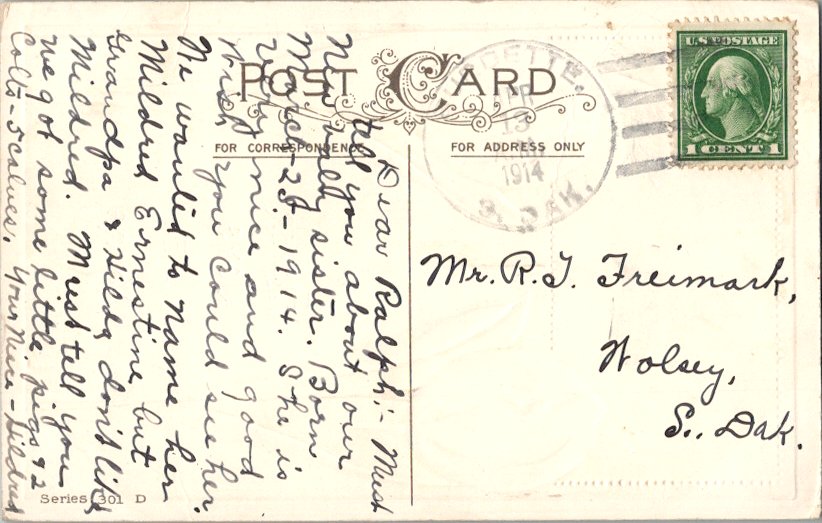 POST CARD
FOR CORRESPONDENCE
FOR ADDRESS ONLY
U.S. POSTAGE
1 CENT 1
13
1914
S. DAK.
Dear Ralph:- Must
tell you about our
New baby sister. Born
March-25-1914. She is
Very nice and good
Wish you could see her.
We wanted to name her
Mildred Ernestine but
Grandpa & Hilda don't like
Mildred. Must tell you
We got some little pigs & 2
Colts-5 calves. Your Niece-
Mr. R. J. Freimark,
Wolsey,
S. Dak.
Series 301 D